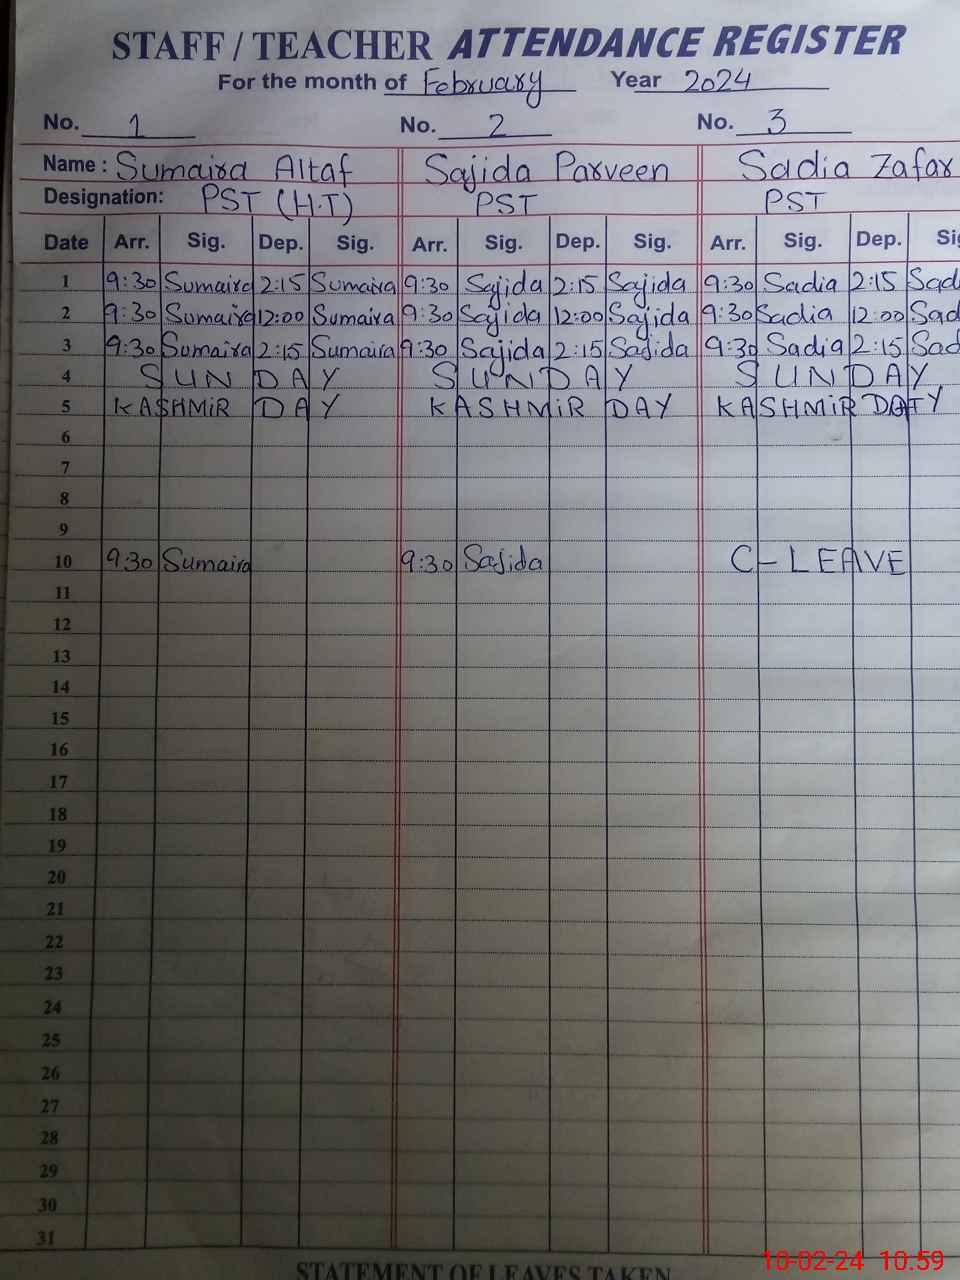 STAFF / TEACHER ATTENDANCE REGISTER
For the month of February Year 2024
No. 1 No. 2 No. 3
Name : Sumaira Altaf Sajida Parveen Sadia Zafar
Designation: PST (H.T) PST PST
Date Arr. Sig. Dep. Sig. Arr. Sig. Dep. Sig. Arr. Sig. Dep. Sig
1 9:30 Sumaira 2:15 Sumaira 9:30 Sajida 2:15 Sajida 9:30 Sadia 2:15 Sad
2 9:30 Sumaira 12:00 Sumaira 9:30 Sajida 12:00 Sajida 9:30 Sadia 12:00 Sad
3 9:30 Sumaira 2:15 Sumaira 9:30 Sajida 2:15 Sajida 9:30 Sadia 2:15 Sad
4 SUNDAY SUNDAY SUNDAY
5 KASHMiR DAY KASHMiR DAY KASHMiR DAY
6
7
8
9
10 9:30 Sumaira 9:30 Sajida C-LEAVE
11
12
13
14
15
16
17
18
19
20
21
22
23
24
25
26
27
28
29
30
31
STATEMENT OF LEAVES TAKEN
10-02-24 10.59